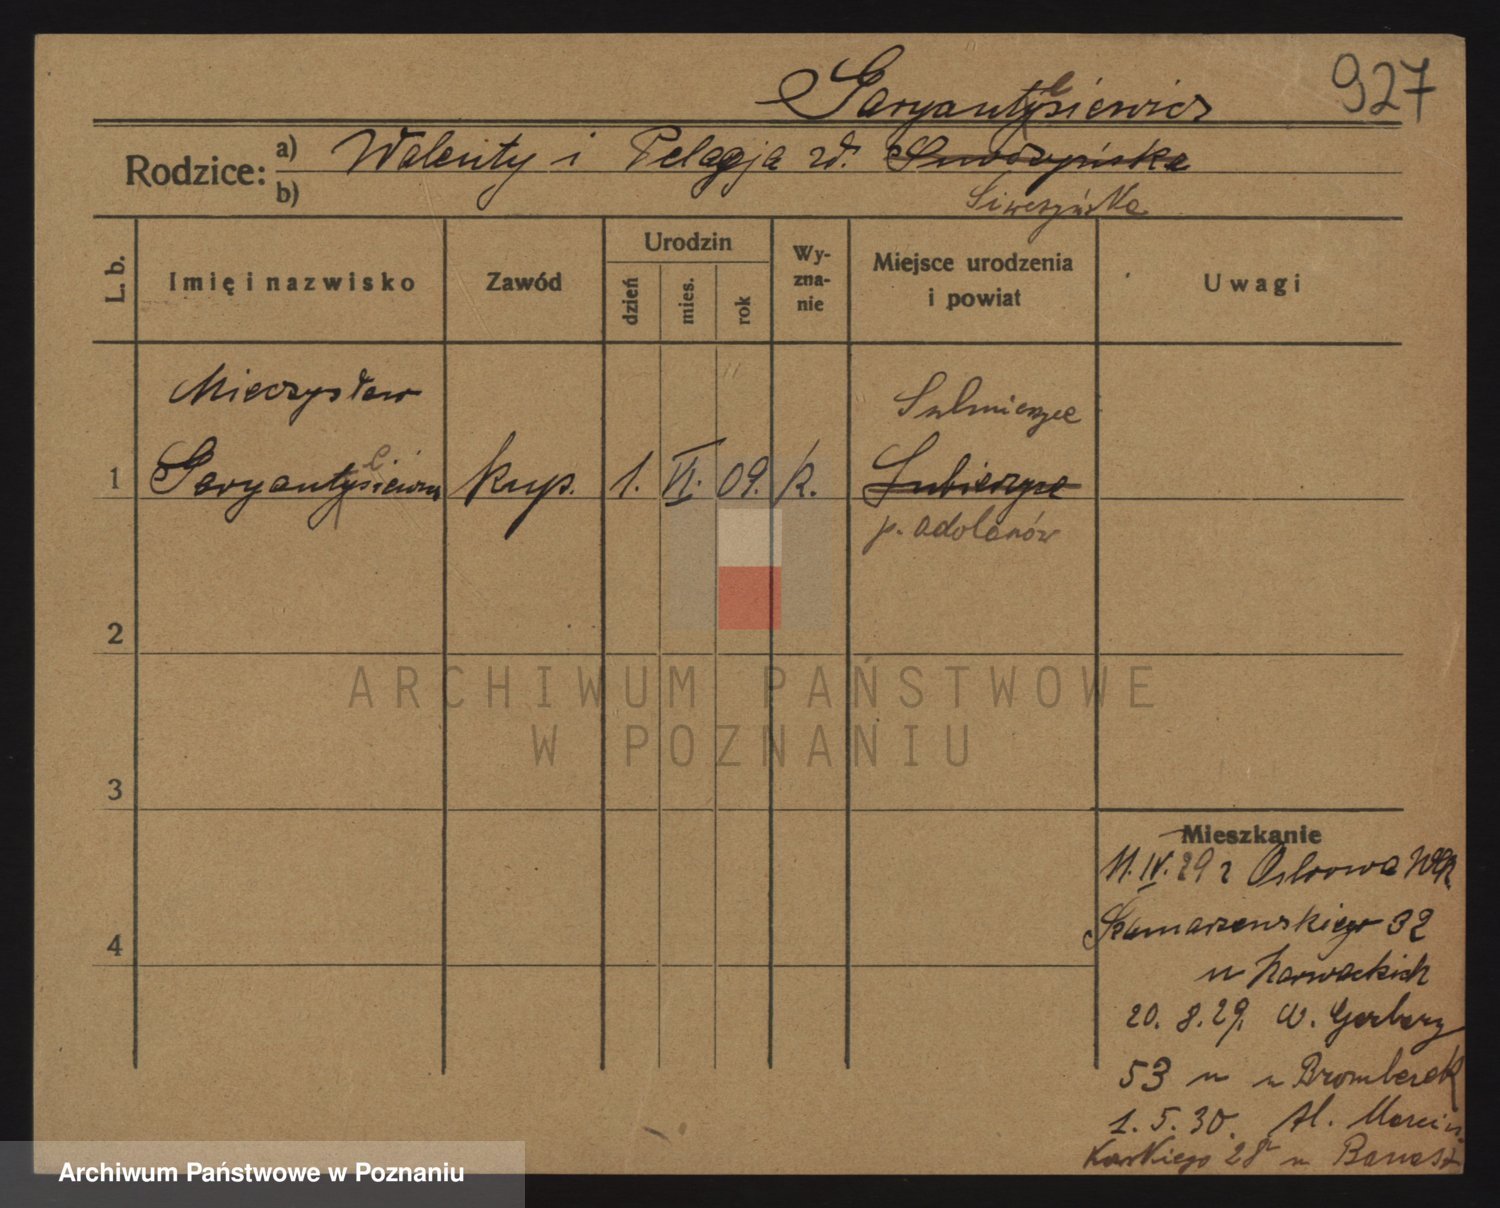 927
Garyantysiewicz
Rodzice:
a) Walenty i Pelagja zd. Suwczyńska
b)
Siweszyńska
L. b.
Imię i nazwisko
Zawód
Urodzin
dzień
mies.
rok
Wy-
zna-
nie
Miejsce urodzenia
i powiat
Uwagi
Mieczysław
Sulmierzyce
1 Garyantysiewicz kup. 1. VI. 09. k. Lubierzyce
p. Adolanów
2
3
4
Mieszkanie
11. IV. 29 z Ostrowa Wlk.
Szamarzewskiego 32
u Karwackich
20. 8. 29. W. Garbary
53 m u Bromberek
1. 5. 30. Al. Marcin-
kowskiego 28 u Banasz
ARCHIWUM PAŃSTWOWE
W POZNANIU
Archiwum Państwowe w Poznaniu